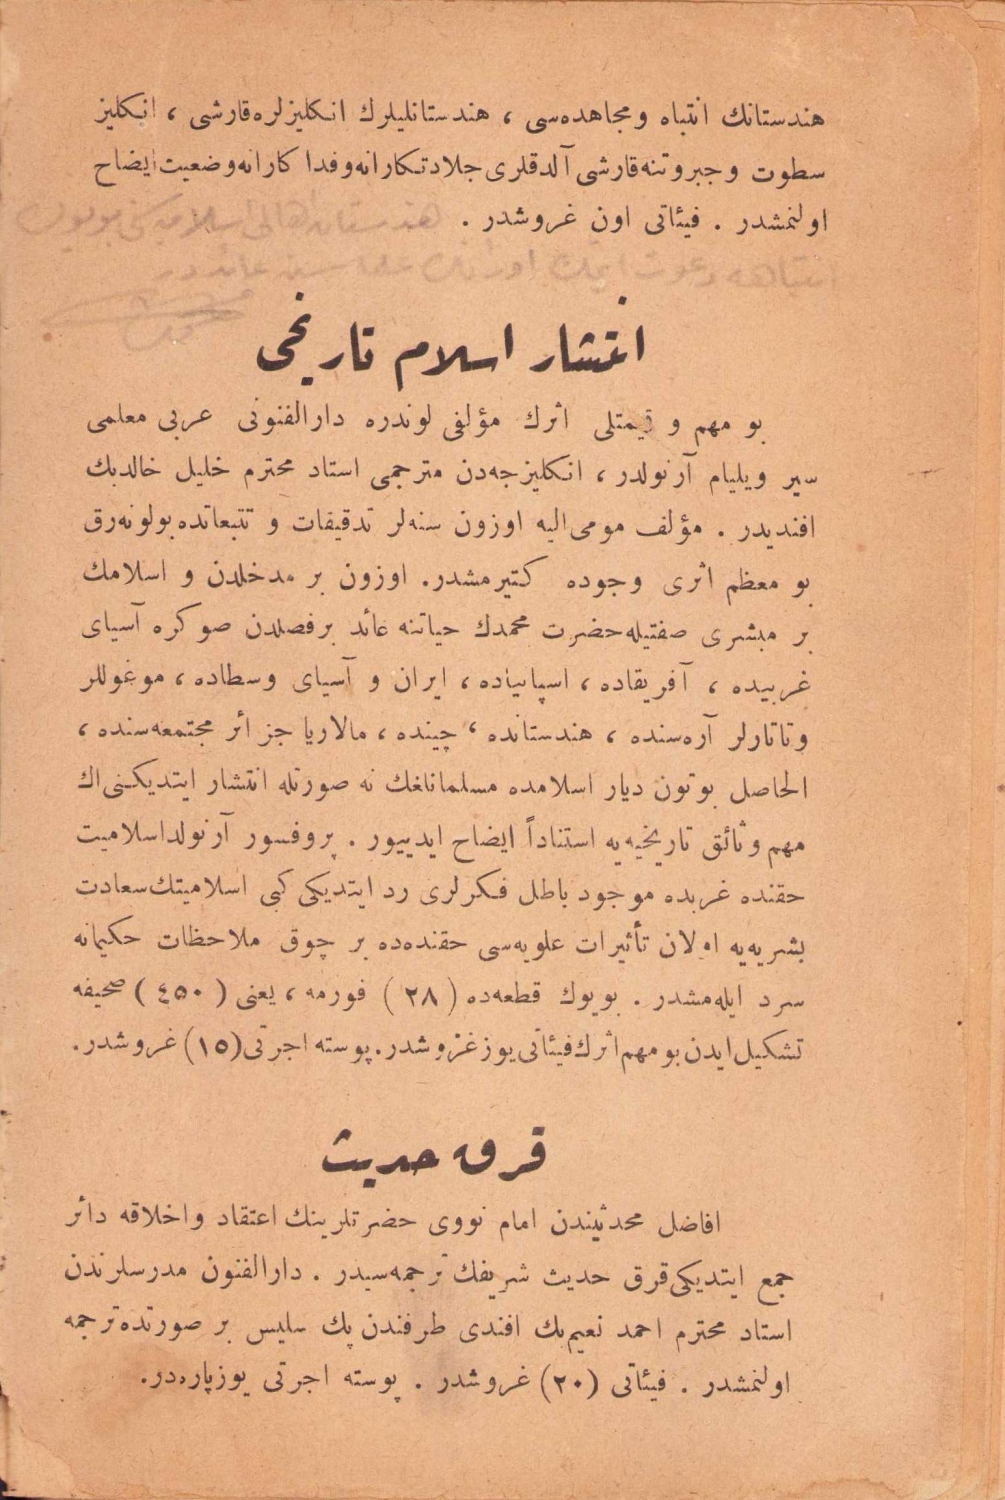 هندستانك انتباه ومجاهده‌سی ، هندستانلیلرك انکلیزلره‌قارشی ، انکلیز
سطوت وجبروتنه‌قارشی آلدقلری‌جلادتکارانه‌وفدا کارانه‌وضعیت‌ایضاح
اولنمشدر . فیئاتی اون غروشدر .
انتشار اسلام تاریخی
بو مهم و قیمتلی اثرك مؤلفی لوندره دارالفنونی عربی معلمی
سیر ویلیام آرنولدر ، انکلیزجه‌دن مترجمی استاد محترم خلیل خالدبك
افندیدر . مؤلف مومی‌الیه اوزون سنه‌لر تدقیقات و تتبعاتده‌بولونه‌رق
بو معظم اثری وجوده کتیرمشدر. اوزون بر مدخلدن و اسلامك
بر مبشری صفتیله‌حضرت محمدك حیاتنه عائد برفصلدن صوکره آسیای
غربیده ، آفریقاده ، اسپانیاده ، ایران و آسیای وسطاده ، موغوللر
وتاتارلر آره‌سنده ، هندستانده ، چینده ، مالاریا جزائر مجتمعه‌سنده ،
الحاصل بوتون دیار اسلامده مسلمانلغك نه صورتله انتشار ایتدیکنی‌اك
مهم وثائق تاریخیه‌یه استناداً ایضاح ایدییور . پروفسور آرنولداسلامیت
حقنده غربده موجود باطل فکرلری رد ایتدیکی کبی اسلامیتك‌سعادت
بشریه‌یه اولان تأثیرات علویه‌سی حقنده‌ده بر چوق ملاحظات حکیمانه
سرد ایله‌مشدر . بویوك قطعه‌ده (٢٨) فورمه ، یعنی (٤٥٠) صحیفه
تشکیل‌ایدن‌بومهم‌اثرك‌فیئاتی‌یوزغروشدر.پوسته اجرتی(١٥)غروشدر.
قرق حدیث
افاضل محدثیندن امام نووی حضرتلرینك اعتقاد واخلاقه دائر
جمع ایتدیکی‌قرق حدیث شریفك ترجمه‌سیدر . دارالفنون مدرسلرندن
استاد محترم احمد نعیم‌بك افندی طرفندن پك سلیس بر صورتده‌ترجمه
اولنمشدر . فیئاتی (٢٠) غروشدر . پوسته اجرتی یوزپاره‌در.